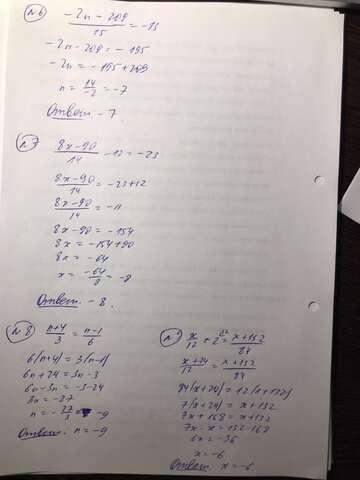 №6
(-2n - 209)/15 = -13
-2n - 209 = -195
-2n = -195 + 209
n = 14/-2 = -7
Ответ: -7
№7
(8x-90)/14 - 12 = -23
(8x-90)/14 = -23+12
(8x-90)/14 = -11
8x-90 = -154
8x = -154+90
8x = -64
x = -64/8 = -8
Ответ: -8.
№8
(n+4)/3 = (n-1)/6
6(n+4) = 3(n-1)
6n+24 = 3n-3
6n-3n = -3-24
3n = -27
n = -27/3 = -9
Ответ: n = -9
x/12 + 2 = (x+132)/84
(x+24)/12 = (x+132)/84
84(x+24) = 12(x+132)
7(x+24) = x+132
7x+168 = x+132
7x-x = 132-168
6x = -36
x = -6
Ответ: x = -6